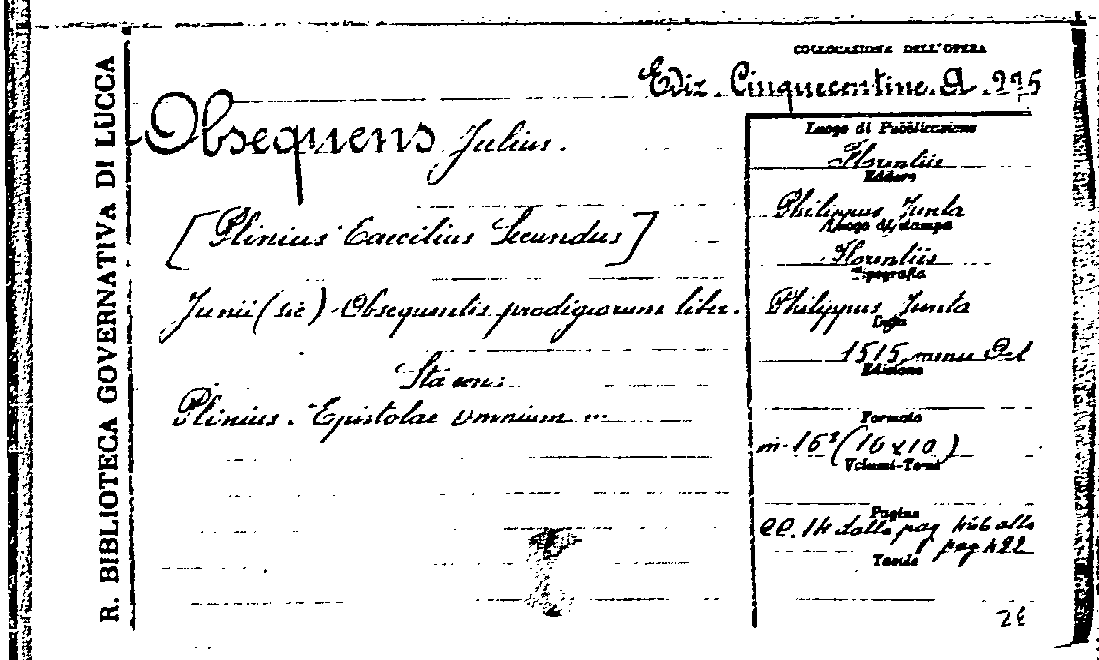 R. BIBLIOTECA GOVERNATIVA DI LUCCA
COLLOCAZIONE DELL'OPERA
Ediz. Cinquecentine. A. 275
Obsequens Julius.
[Plinius Caecilius Secundus]
Junii (sic) Obsequentis prodigiorum liber.
Sta con:
Plinius. Epistolae omnium
Luogo di Pubblicazione
Florentiis
Editore
Philippus Junta
Luogo di stampa
Florentiis
Tipografia
Philippus Junta
1515
Edizione
Formato
in-16° (16 x 10)
Volumi-Tomi
Pagine
cc. 14 dalla pag. alla
pag 422
Tavole